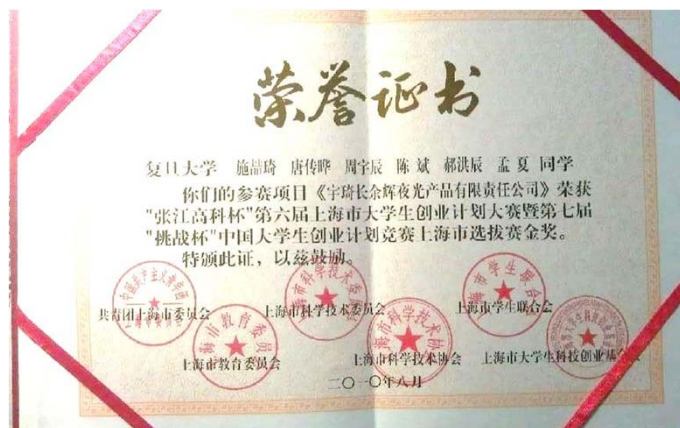 荣誉证书
复旦大学 施喆琦 唐传晔 周宇辰 陈斌 郝洪辰 孟夏 同学
你们的参赛项目《宇琦长余辉夜光产品有限责任公司》荣获
"张江高科杯"第六届上海市大学生创业计划大赛暨第七届
"挑战杯"中国大学生创业计划竞赛上海市选拔赛金奖。
特颁此证，以兹鼓励。
共青团上海市委员会 上海市科学技术委员会 上海市学生联合会
上海市教育委员会 上海市科学技术协会 上海市大学生科技创业基金会
二〇一〇年八月